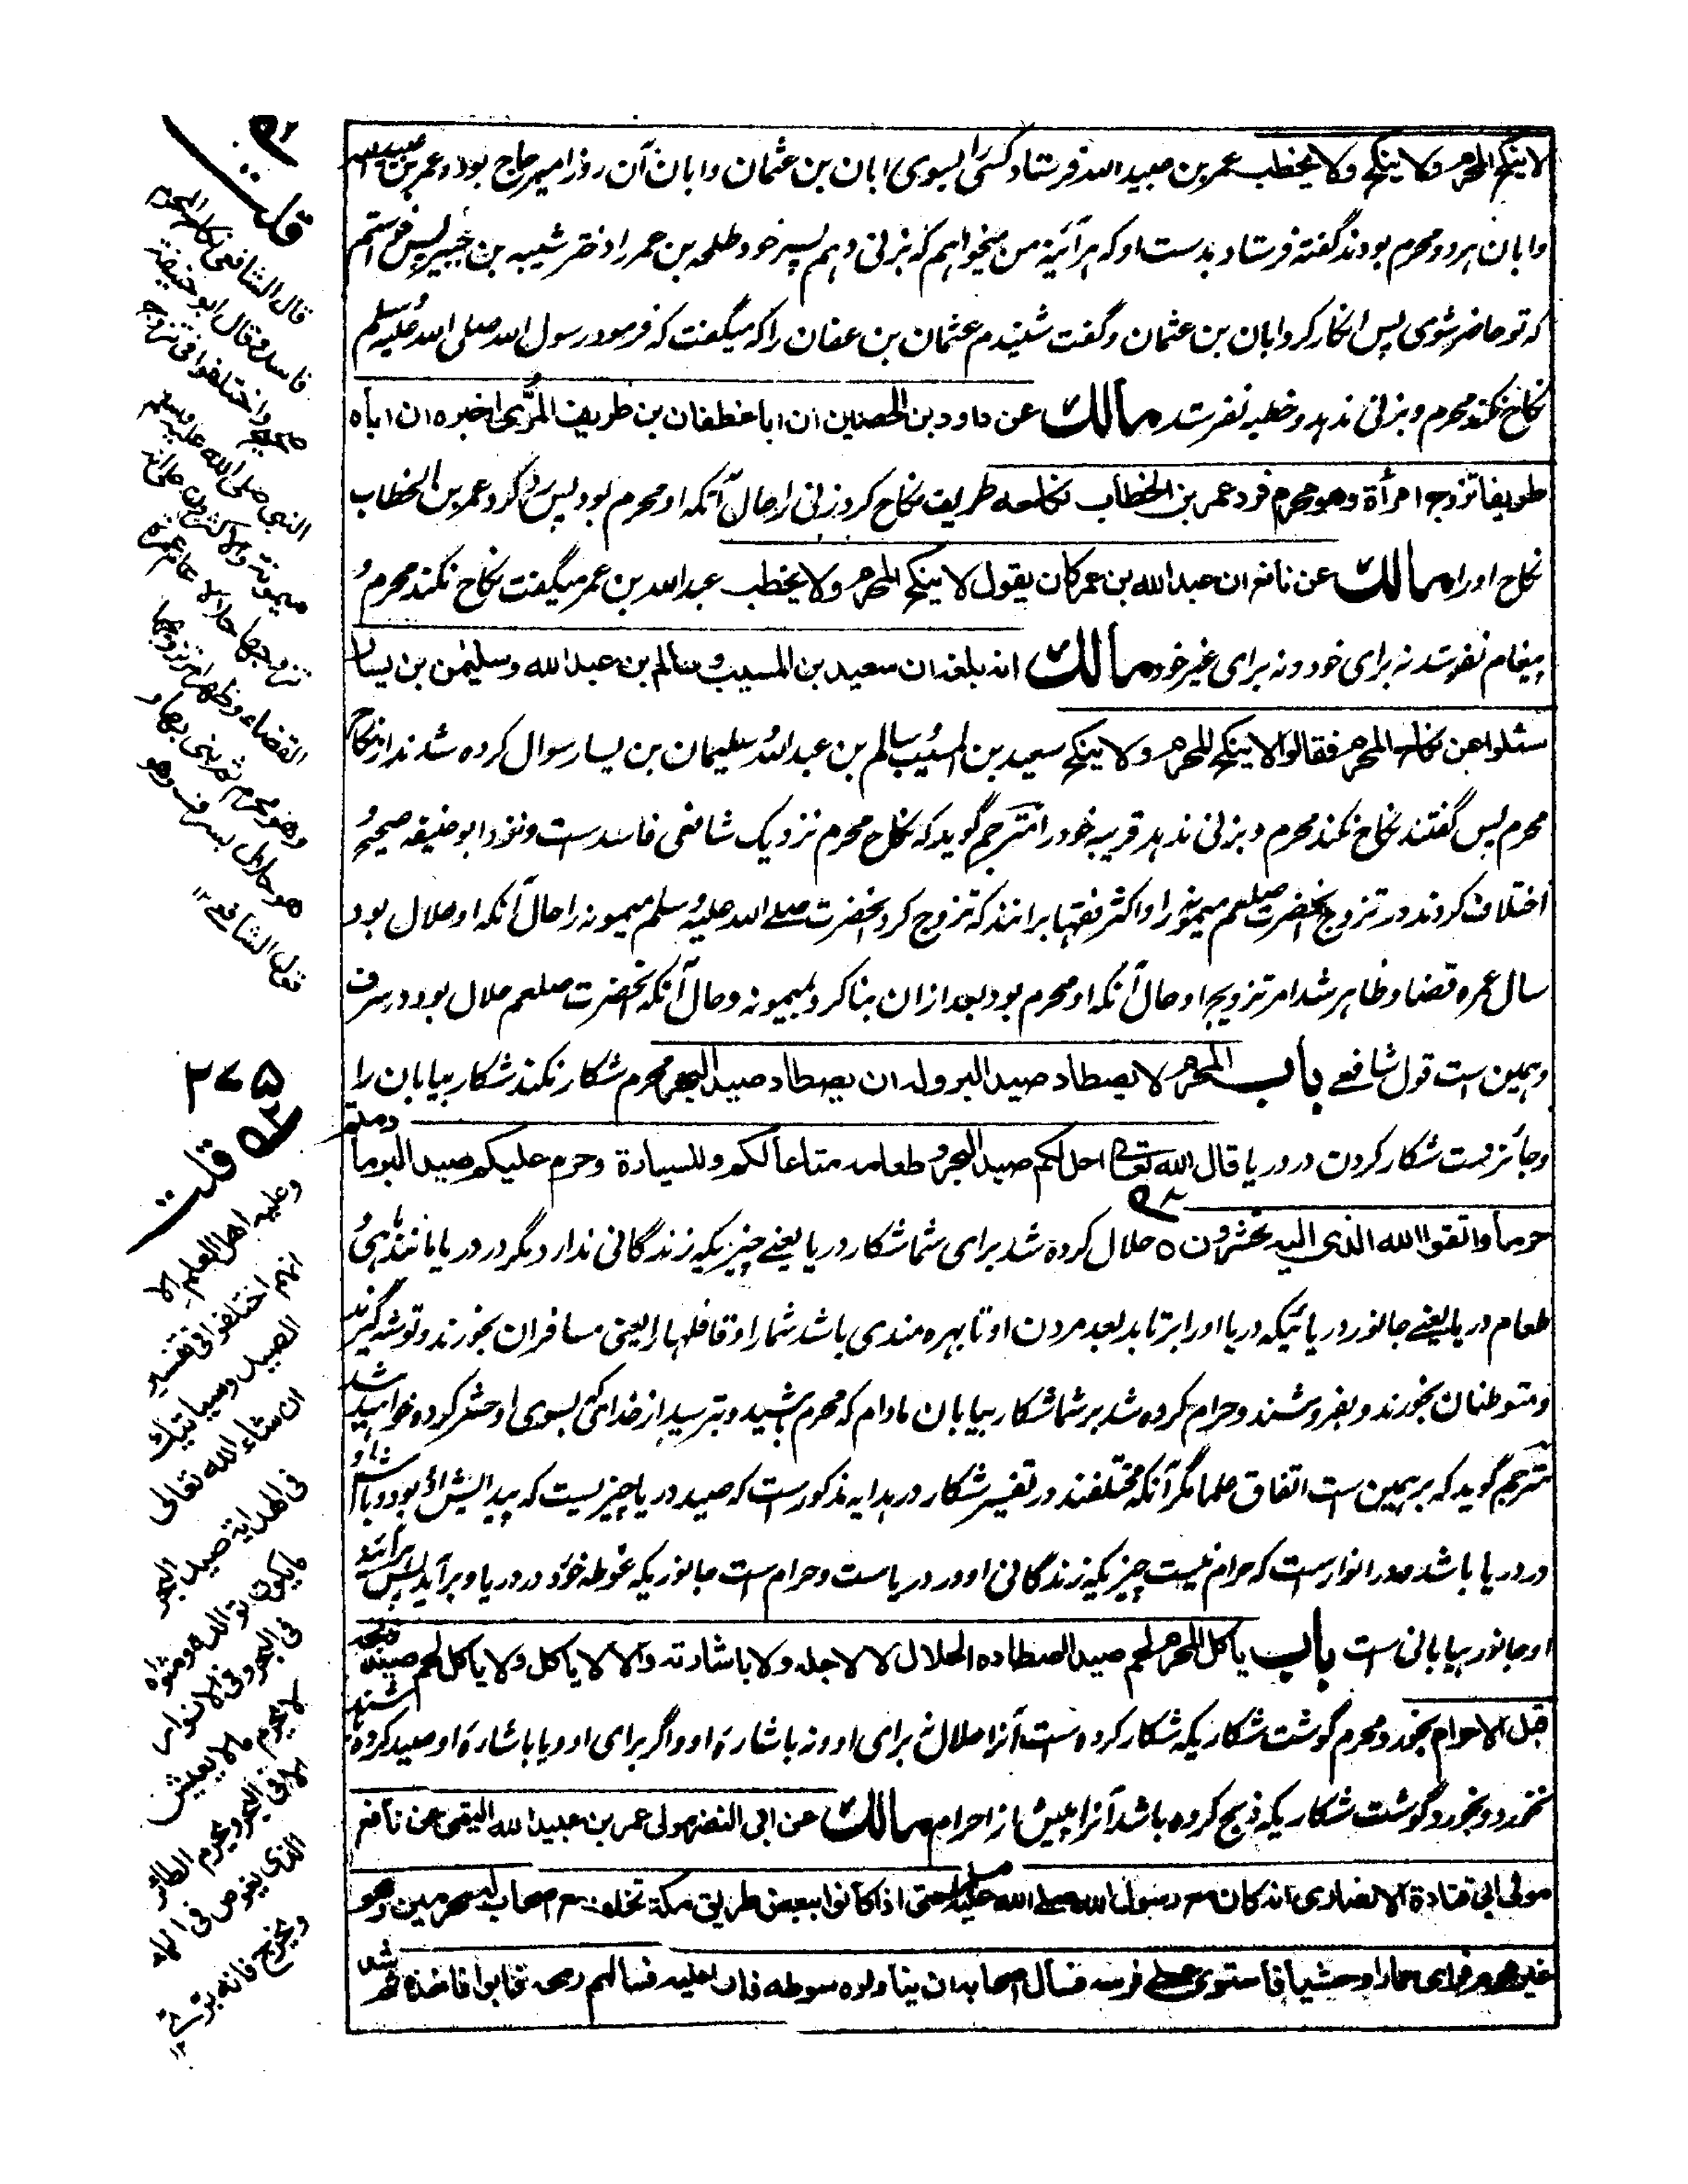 لا ینکح المحرم ولا ینکح ولا یخطب عمر بن عبید الله فرستاد کسی را بسوی ابان بن عثمان و ابان آن روز امیر حاج بود و عمر بن عبید الله
و ابان هر دو محرم بودند گفته فرستاد بدست او که هر آئینه من میخواهم که بزنی دهم پسر خود طلحه بن عمر را دختر شیبه بن جبیر پس خواستم
که تو حاضر شوی پس انکار کرد ابان بن عثمان و گفت شنیدم عثمان بن عفان را که میگفت که فرمود رسول الله صلی الله علیه وسلم
نکاح نکند محرم و بزنی ندهد و خطبه نفرستد مالك عن داود بن الحصین ان ابا غطفان بن طریف المُرّی اخبره ان اباه
طریفا تزوج امرأة وهو محرم فرد عمر بن الخطاب نکاحه طریف نکاح کرد زنی را حال آنکه او محرم بود پس رد کرد عمر بن الخطاب
نکاح او را مالك عن نافع ان عبد الله بن عمر کان یقول لا ینکح المحرم ولا یخطب عبد الله بن عمر میگفت نکاح نکند محرم و
پیغام نفرستد نه برای خود و نه برای غیر خود مالك انه بلغه ان سعید بن المسیب و سالم بن عبد الله وسلیمن بن یسار
سئلوا عن نکاح المحرم فقالوا لا ینکح المحرم ولا ینکح سعید بن المسیب و سالم بن عبد الله و سلیمان بن یسار سوال کرده شدند از نکاح
محرم پس گفتند نکاح نکند محرم و بزنی ندهد قریبه خود را مترجم گوید که نکاح محرم نزدیک شافعی فاسد ست و نزد ابو حنیفه صحیح و
اختلاف کردند در تزوج آنحضرت صلعم میمونه را و اکثر فقها برانند که تزوج کرد آنحضرت صلے الله علیه وسلم میمونه را حال آنکه او حلال بود
سال عمره قضا و ظاهر شد امر تزویج او حال آنکه او محرم بود بعد ازان بنا کرد بمیمونه و حال آنکه آنحضرت صلعم حلال بود در سرف
و همین ست قول شافعے باب المحرم لا یصطاد صید البر وله ان یصطاد صید البحر محرم شکار نکند شکار بیابان را
و جائز ست شکار کردن در دریا قال الله تعالی احل لکم صید البحر وطعامه متاعا لکم وللسیارة وحرم علیکم صید البر ما دمتم
حرما واتقوا الله الذی الیه تحشرون ٥ حلال کرده شد برای شما شکار دریا یعنے چیزیکه زندگانی ندارد مگر در دریا مانند ماهی و
طعام دریا یعنے جانور دریائیکه دریا او را برتابد بعد مردن او تا بهره مندی باشد شما را و قافلها را یعنی مسافران بخورند و توشه گیرند
و متوطنان بخورند و بفروشند و حرام کرده شد بر شما شکار بیابان مادام که محرم باشید و بترسید از خدائی که بسوی او حشر کرده خواهید شد
مترجم گوید که بر همین ست اتفاق علما مگر آنکه مختلفند در تفسیر شکار در هدایه مذکور ست که صید دریا چیزیست که پیدایش او بود و باش او
در دریا باشد و در انوار ست که حرام نیست چیزیکه زندگانی او در دریاست و حرام ست جانوریکه غوطه خورد در دریا و بر آید پس هر آئنه
او جانور بیابانی ست باب یاکل المحرم لحم صید اصطاده الحلال لا لاجله ولا باشارته والا لا یاکل ولا یاکل لحم صید ذبحه
قبل الاحرام بخورد محرم گوشت شکاریکه شکار کرده ست آنرا حلال نه برای او و نه باشارۀ او و اگر برای او و یا باشارۀ او صید کرده باشند
نخورد و نخورد گوشت شکاریکه ذبح کرده باشد آنرا پیش از احرام مالك عن ابی النضر مولی عمر بن عبید الله التیمی عن نافع
مولی ابی قتادة الانصاری انه کان مع رسول الله صلے الله علیه وسلم حتی اذا کانوا ببعض طریق مکة تخلف مع اصحاب له محرمین وهو
غیر محرم فرای حمارا وحشیا فاستوی علے فرسه فسأل اصحابه ان یناولوه سوطه فابوا علیه فسألهم رمحه فابوا فاخذه ثم شد
قلت
قال الشافعی نکاح المحرم
فاسد وقال ابو حنیفة
صحیح واختلفوا فی تزوج
النبی صلی الله علیه وسلم
میمونة والاکثرون علی انه
تزوجها حلالا عام عمرة
القضاء وظهر امر تزوجها
وهو محرم ثم بنی بها و
هو حلال بسرف وهو
قول الشافعے ١٢
٢٧٥
قلت
وعلیه اهل العلم الا
انهم اختلفوا فی تفسیر
الصید وسیاتیك
ان شاء الله تعالی
فی الهدایة صید البحر
ما یکون توالده ومثواه
فی البحر وفی الانوار
لا یحرم ما لا یعیش
الا فی البحر ویحرم الطائر
الذی یغوص فی الماء
ویخرج فانه بری
١٢